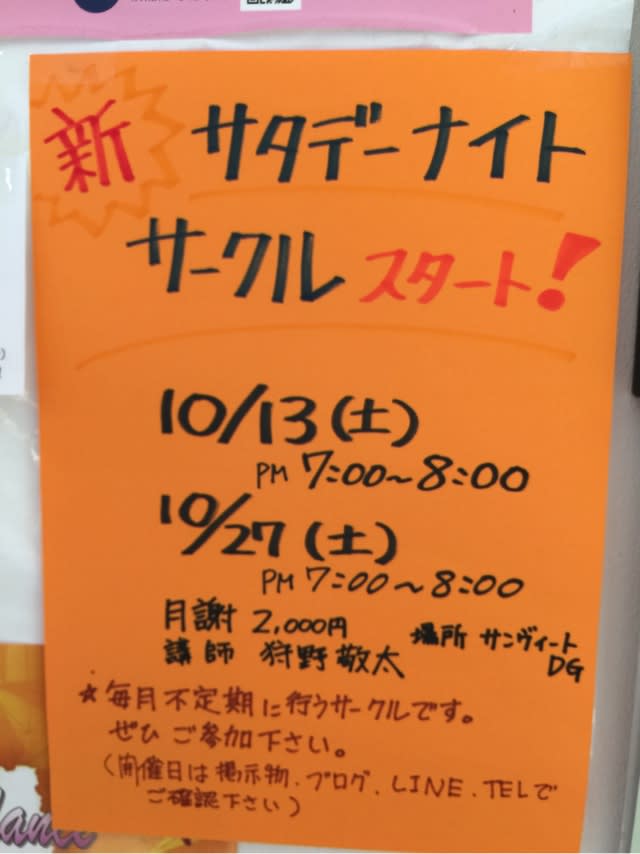 新 サタデーナイト
サークル スタート!
10/13(土)
PM 7:00~8:00
10/27(土)
PM 7:00~8:00
月謝 2,000円
場所 サンヴィート
DG
講師 狩野敬太
☆毎月不定期に行うサークルです。
ぜひ ご参加下さい。
(開催日は掲示物、ブログ、LINE、TELで
ご確認下さい)